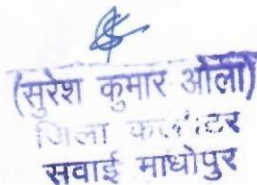 (सुरेश कुमार ओला)
जिला कलक्टर
सवाई माधोपुर